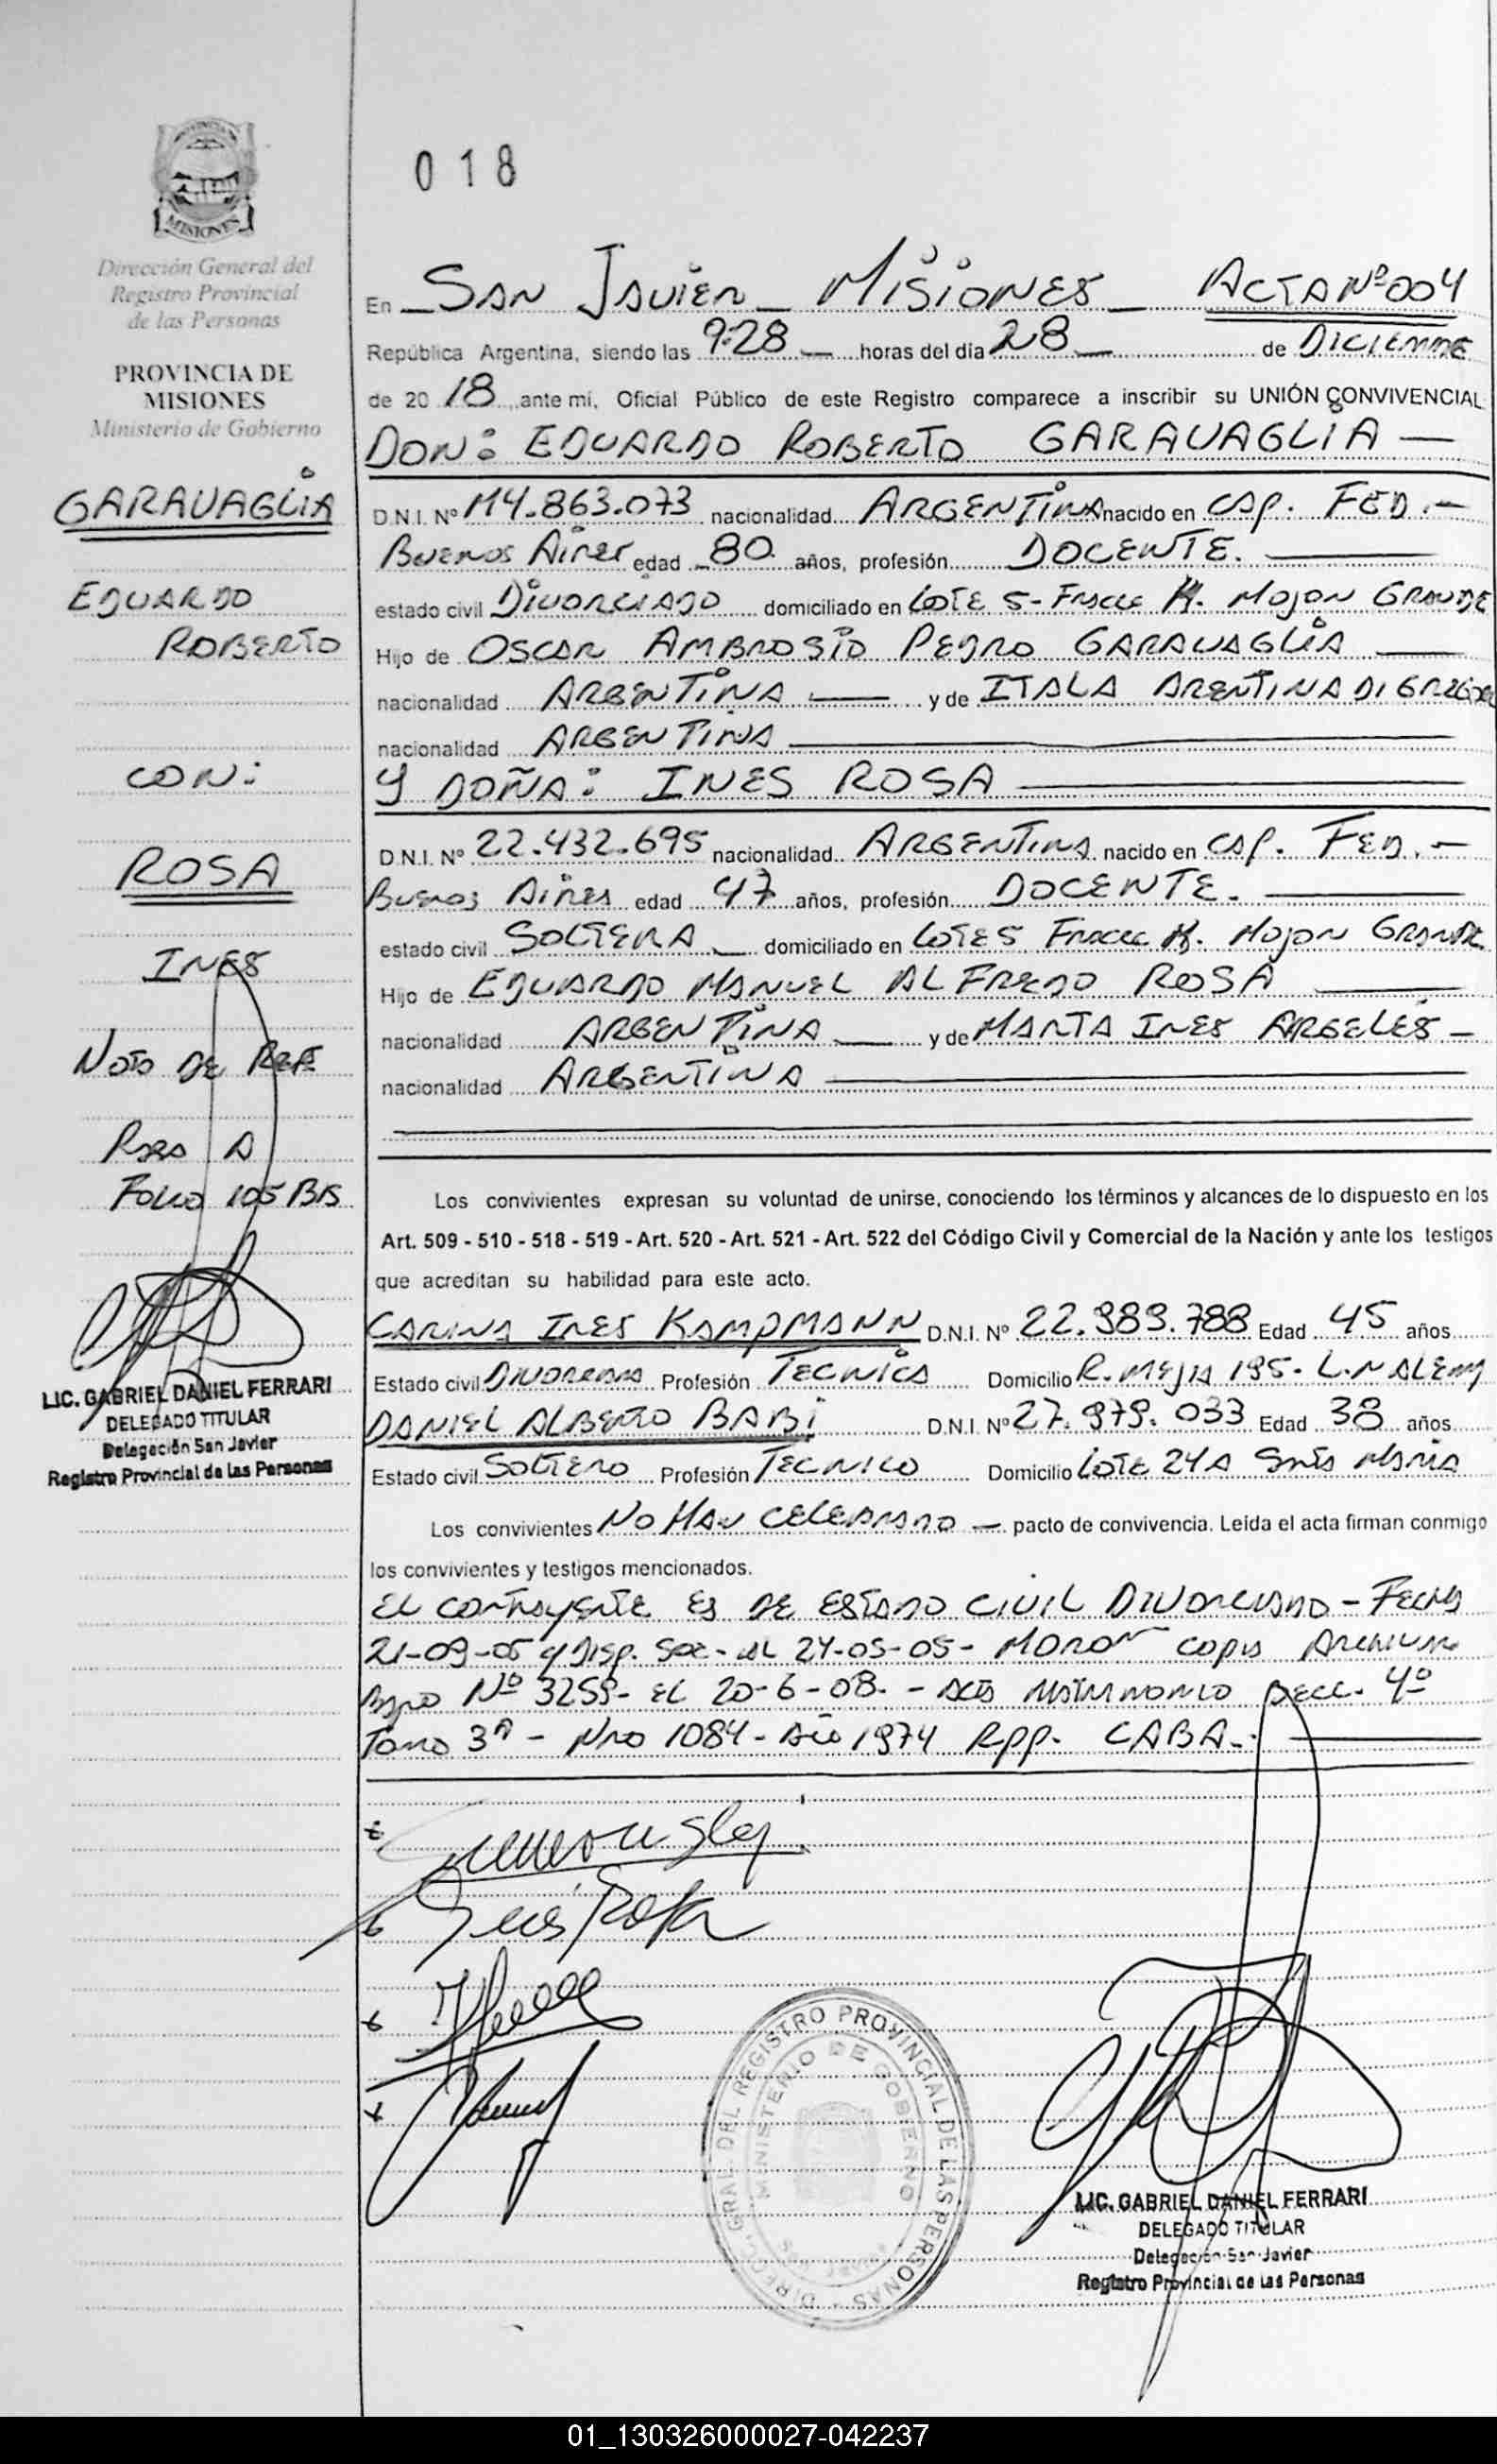 018
MISIONES
Dirección General del
Registro Provincial
de las Personas
PROVINCIA DE
MISIONES
Ministerio de Gobierno
GARAVAGLIA
EDUARDO
ROBERTO
CON:
ROSA
INES
NOTO DE REF.
A
FOLIO 105 BIS
LIC. GABRIEL DANIEL FERRARI
DELEGADO TITULAR
Delegación San Javier
Registro Provincial de las Personas
En SAN JAVIER MISIONES ACTA Nº 004
República Argentina, siendo las 9:28 horas del día 28 de DICIEMBRE
de 2018 ante mí, Oficial Público de este Registro comparece a inscribir su UNIÓN CONVIVENCIAL
DON: EDUARDO ROBERTO GARAVAGLIA
D.N.I. Nº M4.863.073 nacionalidad ARGENTINA nacido en CAP. FED.-
BUENOS AIRES edad 80 años, profesión DOCENTE.
estado civil DIVORCIADO domiciliado en LOTE 5- MOJON GRANDE
Hijo de OSCAR AMBROSIO PEDRO GARAVAGLIA
nacionalidad ARGENTINA y de ITALA ARENTINA DI GREGOR
nacionalidad ARGENTINA
Y DOÑA: INES ROSA
D.N.I. Nº 22.432.695 nacionalidad ARGENTINA nacido en CAP. FED.-
BUENOS AIRES edad 47 años, profesión DOCENTE.
estado civil SOLTERA domiciliado en LOTE 5 MOJON GRANDE
Hijo de EDUARDO MANUEL ALFREDO ROSA
nacionalidad ARGENTINA y de MARTA INES ARGELES-
nacionalidad ARGENTINA
Los convivientes expresan su voluntad de unirse, conociendo los términos y alcances de lo dispuesto en los
Art. 509 - 510 - 518 - 519 - Art. 520 - Art. 521 - Art. 522 del Código Civil y Comercial de la Nación y ante los testigos
que acreditan su habilidad para este acto.
CARINA INES KAMPMANN D.N.I. Nº 22.989.788 Edad 45 años
Estado civil DIVORCIADA Profesión TECNICA Domicilio R. MEJIA 195- L.N ALEM
DANIEL ALBERTO BABI D.N.I. Nº 27.979.033 Edad 38 años
Estado civil SOLTERO Profesión TECNICO Domicilio LOTE 24A SANTA MARIA
Los convivientes NO HAN CELEBRADO pacto de convivencia. Leída el acta firman conmigo
los convivientes y testigos mencionados.
EL CONTRAYENTE ES DE ESTADO CIVIL DIVORCIADO - FECHA
21-09-05 Y DISP. SOC- AL 24-05-05- MORON COPIA ARCHIVADA
BAJO Nº 3259- EL 20-6-08.- ACTA MATRIMONIO SECC. 4º
TOMO 3º - NRO 1084- AÑO 1974 RPP. CABA.
Ines Rosa
DIRECC. GRAL. DEL REGISTRO PROVINCIAL DE LAS PERSONAS
MINISTERIO DE GOBIERNO
LIC. GABRIEL DANIEL FERRARI
DELEGADO TITULAR
Delegación San Javier
Registro Provincial de las Personas
01_130326000027-042237